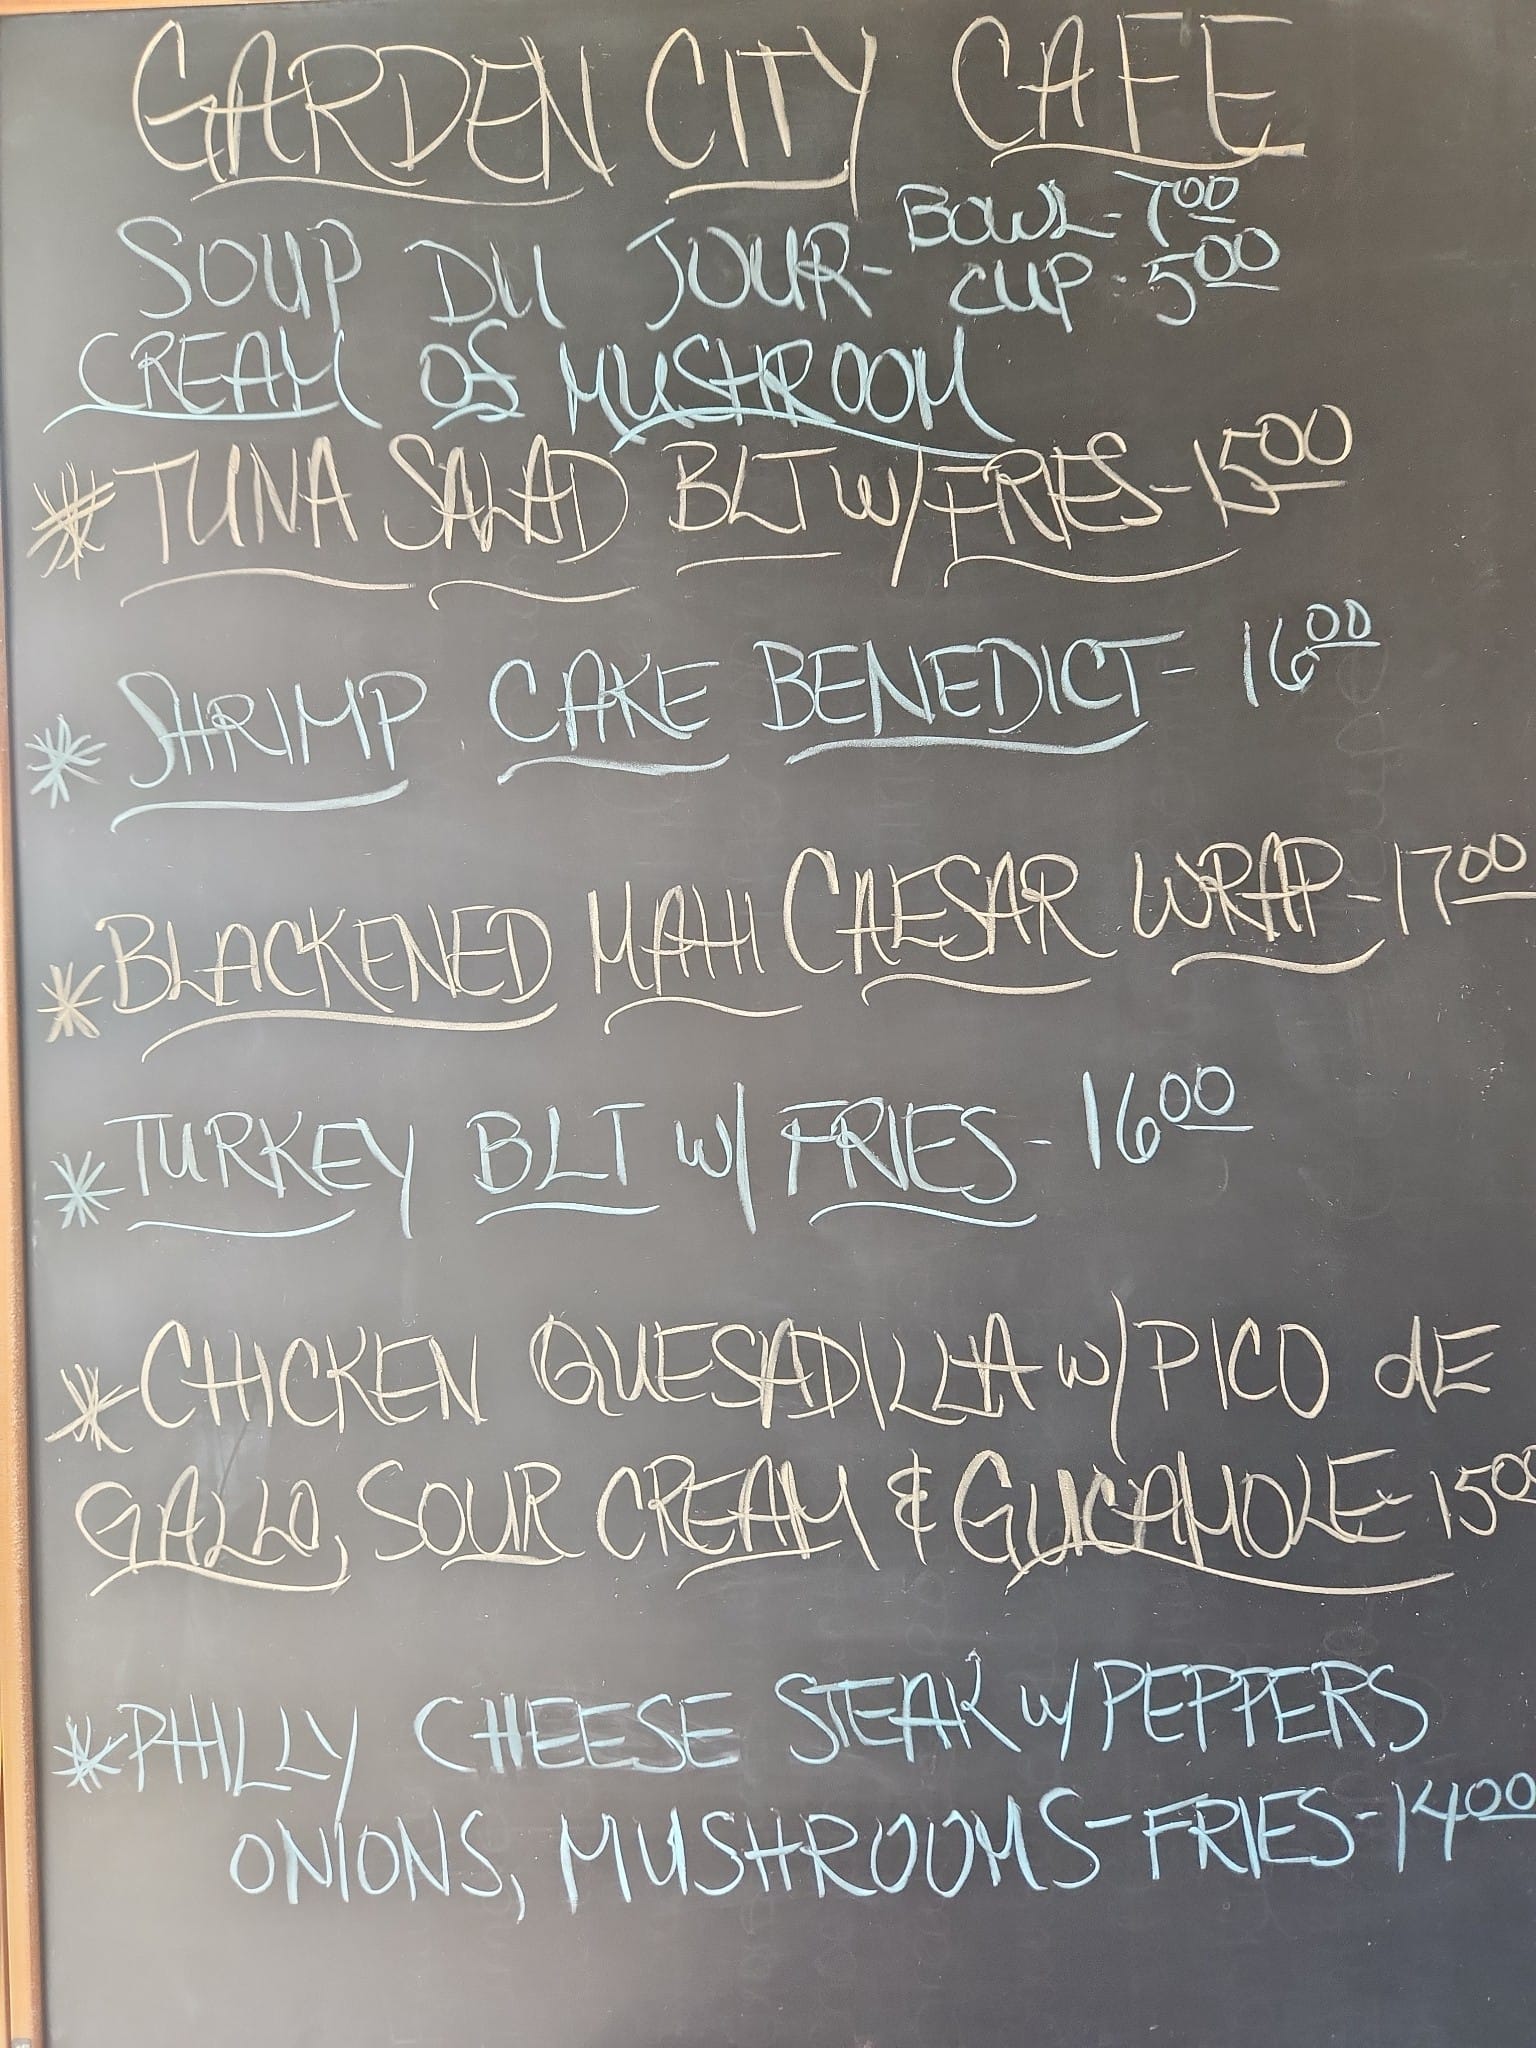 GARDEN CITY CAFE
SOUP DU JOUR- BOWL-7.00
CUP-5.00
CREAM OF MUSHROOM
* TUNA SALAD BLT W/ FRIES-15.00
* SHRIMP CAKE BENEDICT- 16.00
* BLACKENED MAHI CAESAR WRAP-17.00
* TURKEY BLT W/ FRIES- 16.00
* CHICKEN QUESADILLA W/ PICO dE
GALLO, SOUR CREAM & GUCAMOLE- 15.00
* PHILLY CHEESE STEAK W/ PEPPERS
ONIONS, MUSHROOMS-FRIES-14.00